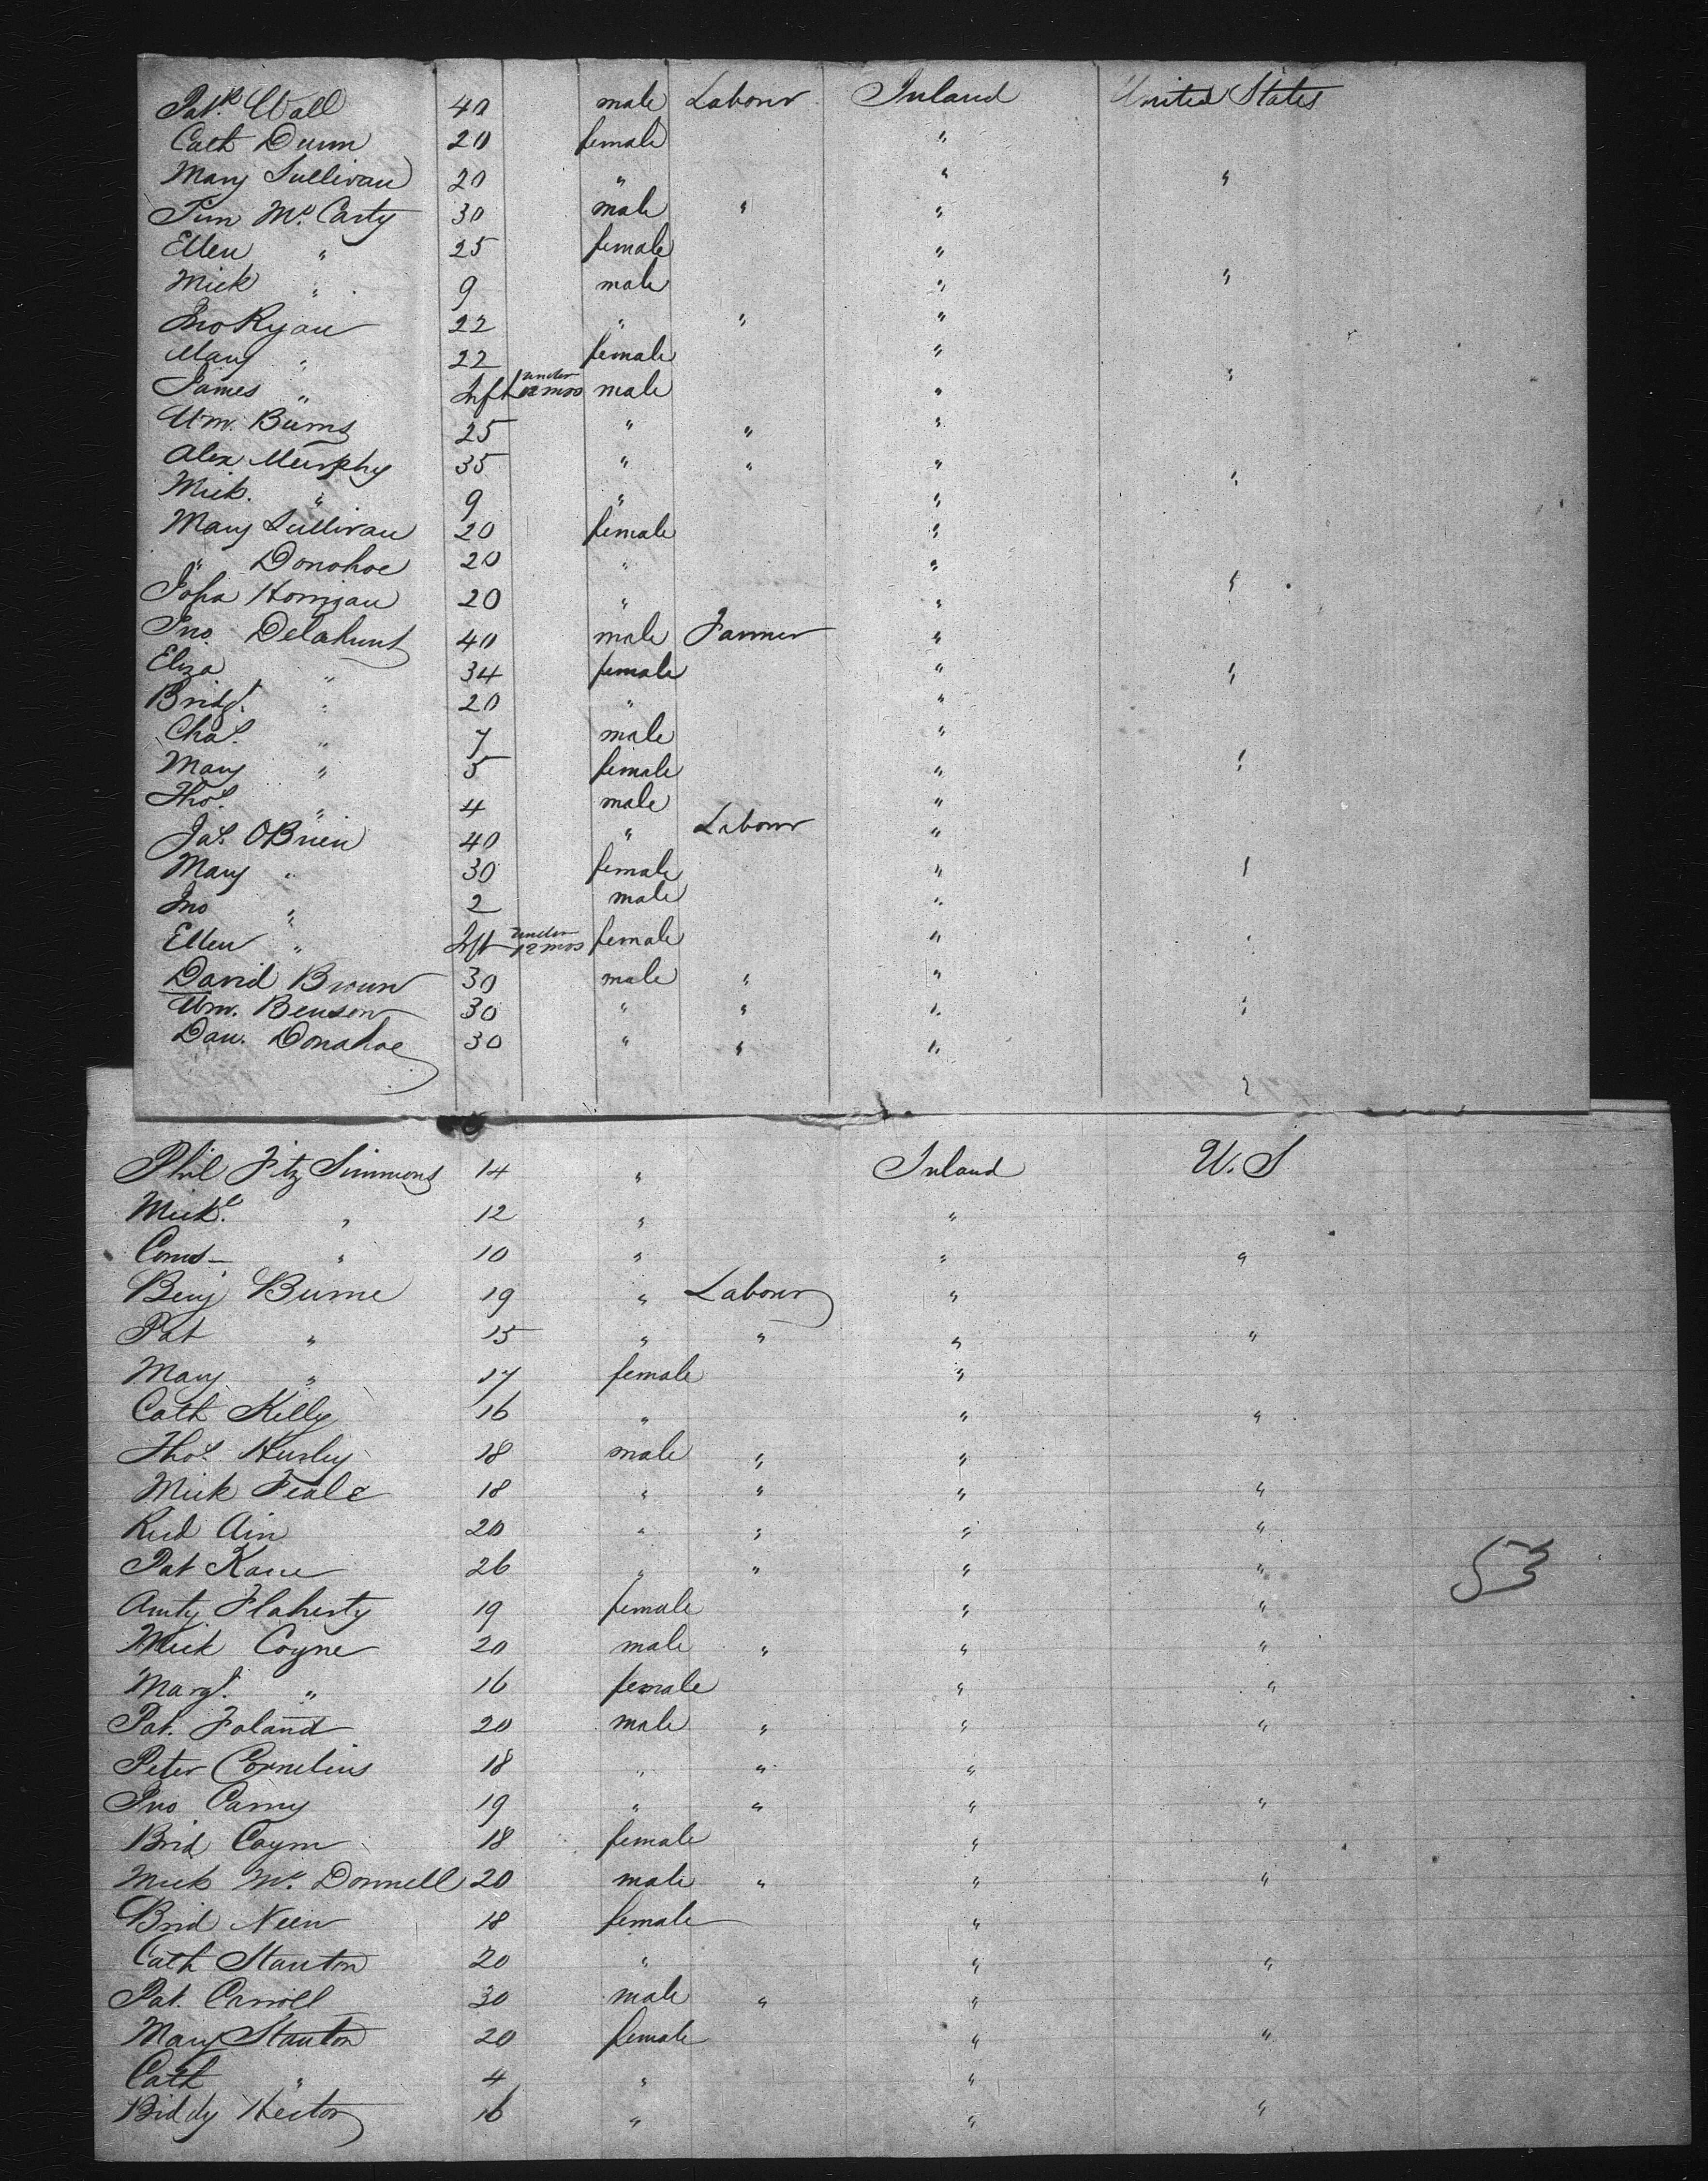 Patk Wall 40 male Labour Ireland United States
Cath Dunn 20 female "
Mary Sullivan 20 " " "
Tim McCarty 30 male " "
Ellen " 25 female "
Mick " 9 male " "
Jno Ryan 22 " " "
Mary " 22 female "
James " Inft under 12 mos male " "
Wm. Burns 25 " " "
Alex Murphy 35 " " " "
Mick. " 9 " "
Mary Sullivan 20 female "
" Donohoe 20 " " "
Joha Horrigan 20 " "
Jno. Delahunt 40 male Farmer "
Eliza " 34 female " "
Bridgt. " 20 " "
Chas. " 7 male "
Mary " 5 female " "
Thos. " 4 male "
Jas. OBrien 40 " Labour "
Mary " 30 female " "
Jno " 2 male "
Ellen " Inft under 12 mos female " "
David Brown 30 male " "
Wm. Benson 30 " " " "
Dan. Donahoe 30 " " "
"
Phil Fitz Simmons 14 " Ireland U.S
Mickl. " 12 " "
Corns " 10 " " "
Benj Burne 19 " Labour "
Pat " 15 " " " "
Mary " 17 female "
Cath Kelly 16 " " "
Thos. Hurley 18 male " "
Mick Feale 18 " " " "
Rud Ain 20 " " " "
Pat Kane 26 " " " " 53
Anty Flaherty 19 female " "
Mick Coyne 20 male " " "
Margt. " 16 female " "
Pat. Foland 20 male " " "
Peter Cornelius 18 " " "
Jno Carny 19 " " " "
Brid Coym 18 female "
Mick Mc. Donnell 20 male " " "
Brid Neen 18 female "
Cath Stanton 20 " " "
Pat. Carroll 30 male " "
Mary Stanton 20 female " "
Cath " 4 " "
Biddy Hector 16 " " "